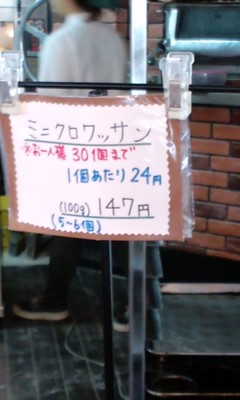 ミニクロワッサン
※お一人様 30個まで
1個あたり 24円
(100g) 147円
(5〜6個)